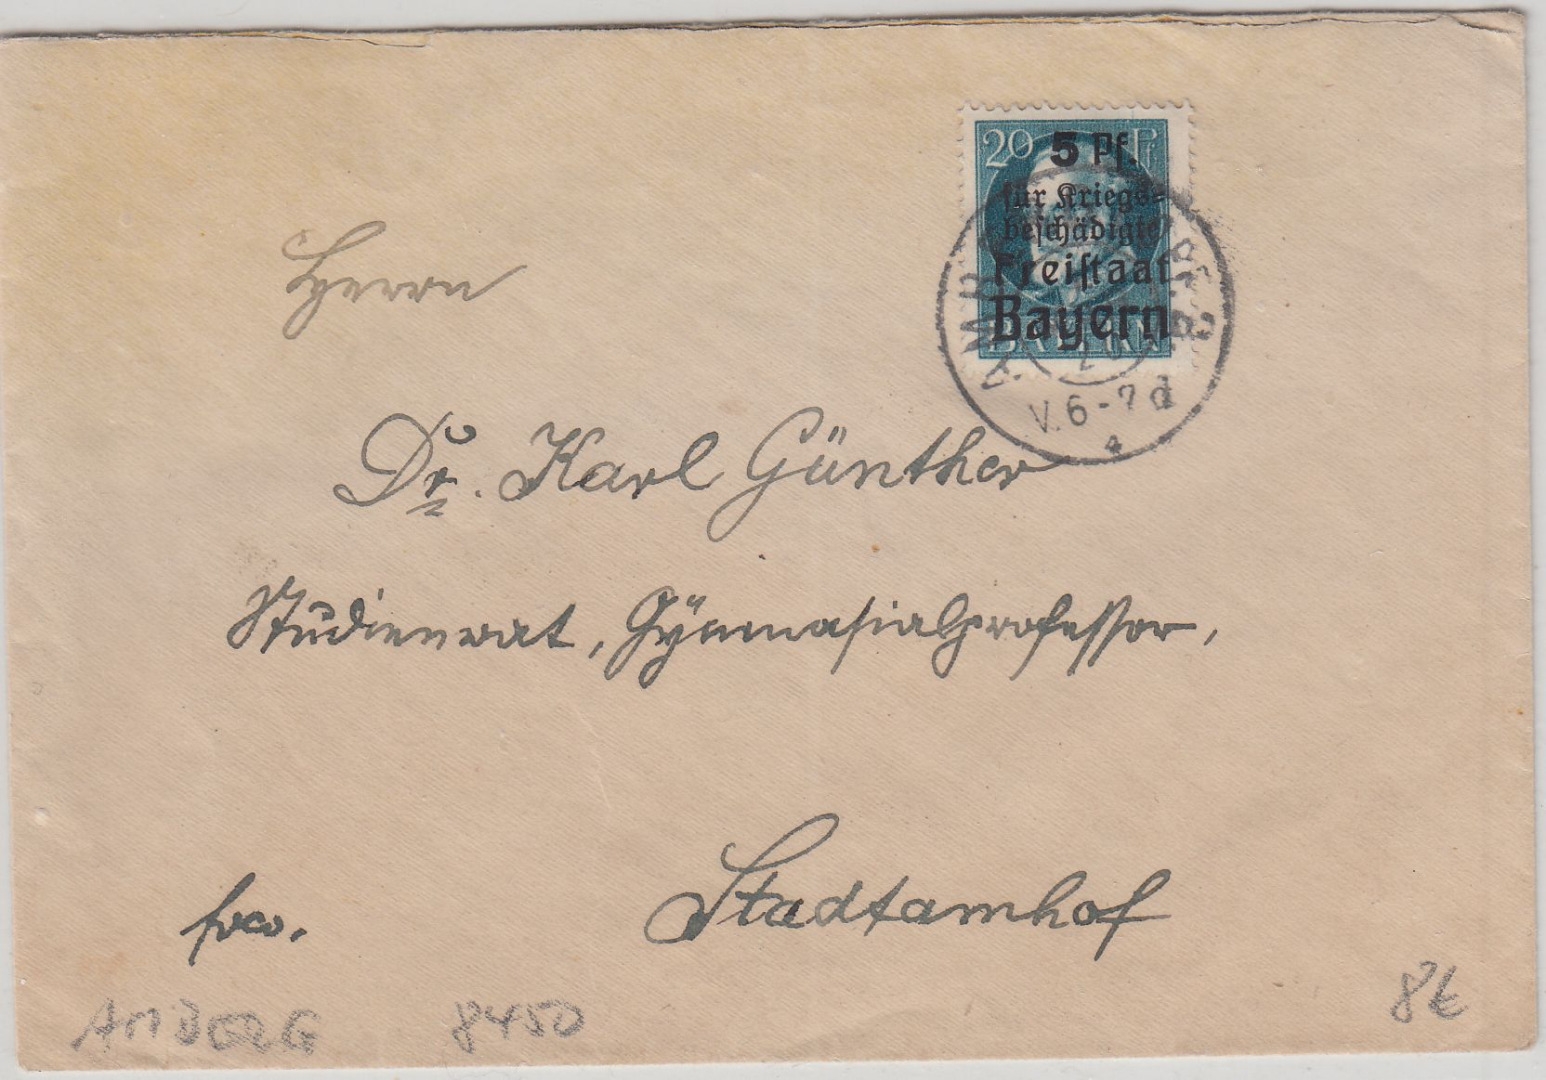 20 Pf
5 Pf.
für Kriegs-
beschädigte
Freistaat
Bayern
BAYERN
AMBERG
V. 6-7 d
Herrn
Dr. Karl Günther
Studienrat, Gymnasialprofessor,
Stadtamhof
fco.
AMBERG 8450 8€